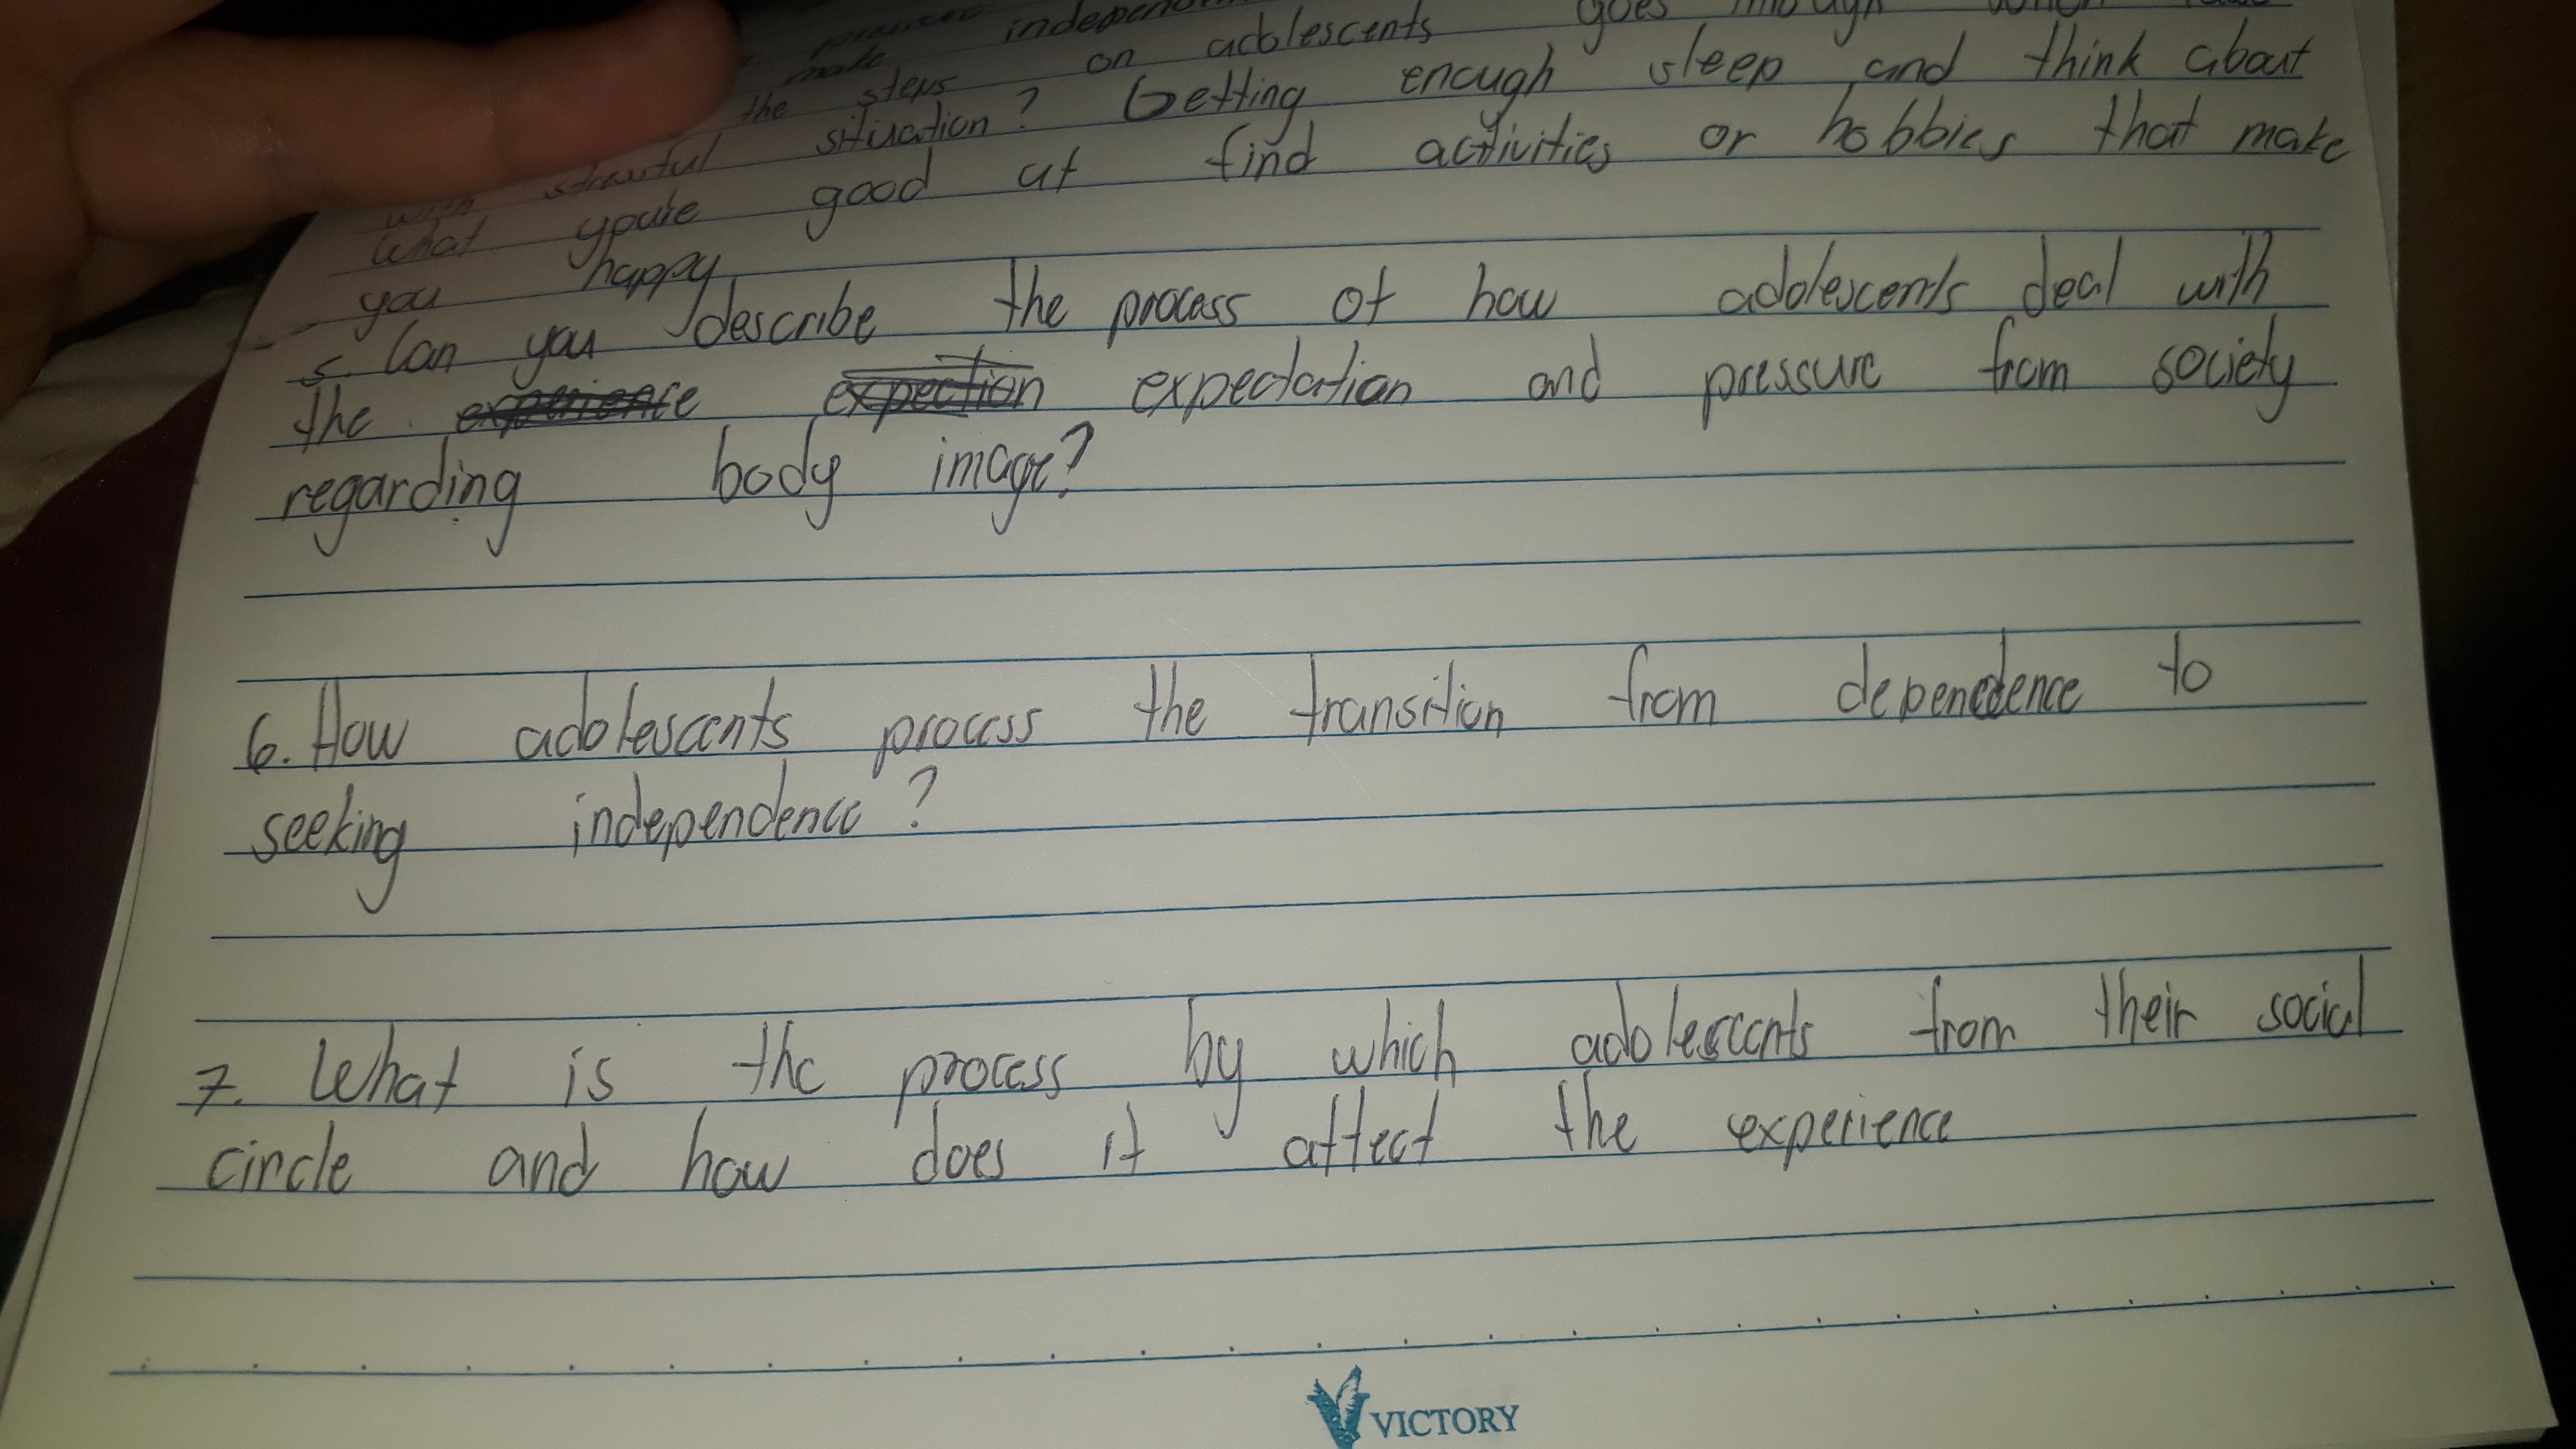 independen
make on adolescents goes through when
the steps
with stressful situation? Getting enough sleep and think about
what you're good at find activities or hobbies that make
you happy
5. Can you describe the process of how adolescents deal with
the experience expection expectation and pressure from society
regarding body image?
6. How adolescents process the transition from dependence to
seeking independence?
7. What is the process by which adolescents from their social
circle and how does it affect the experience
VICTORY